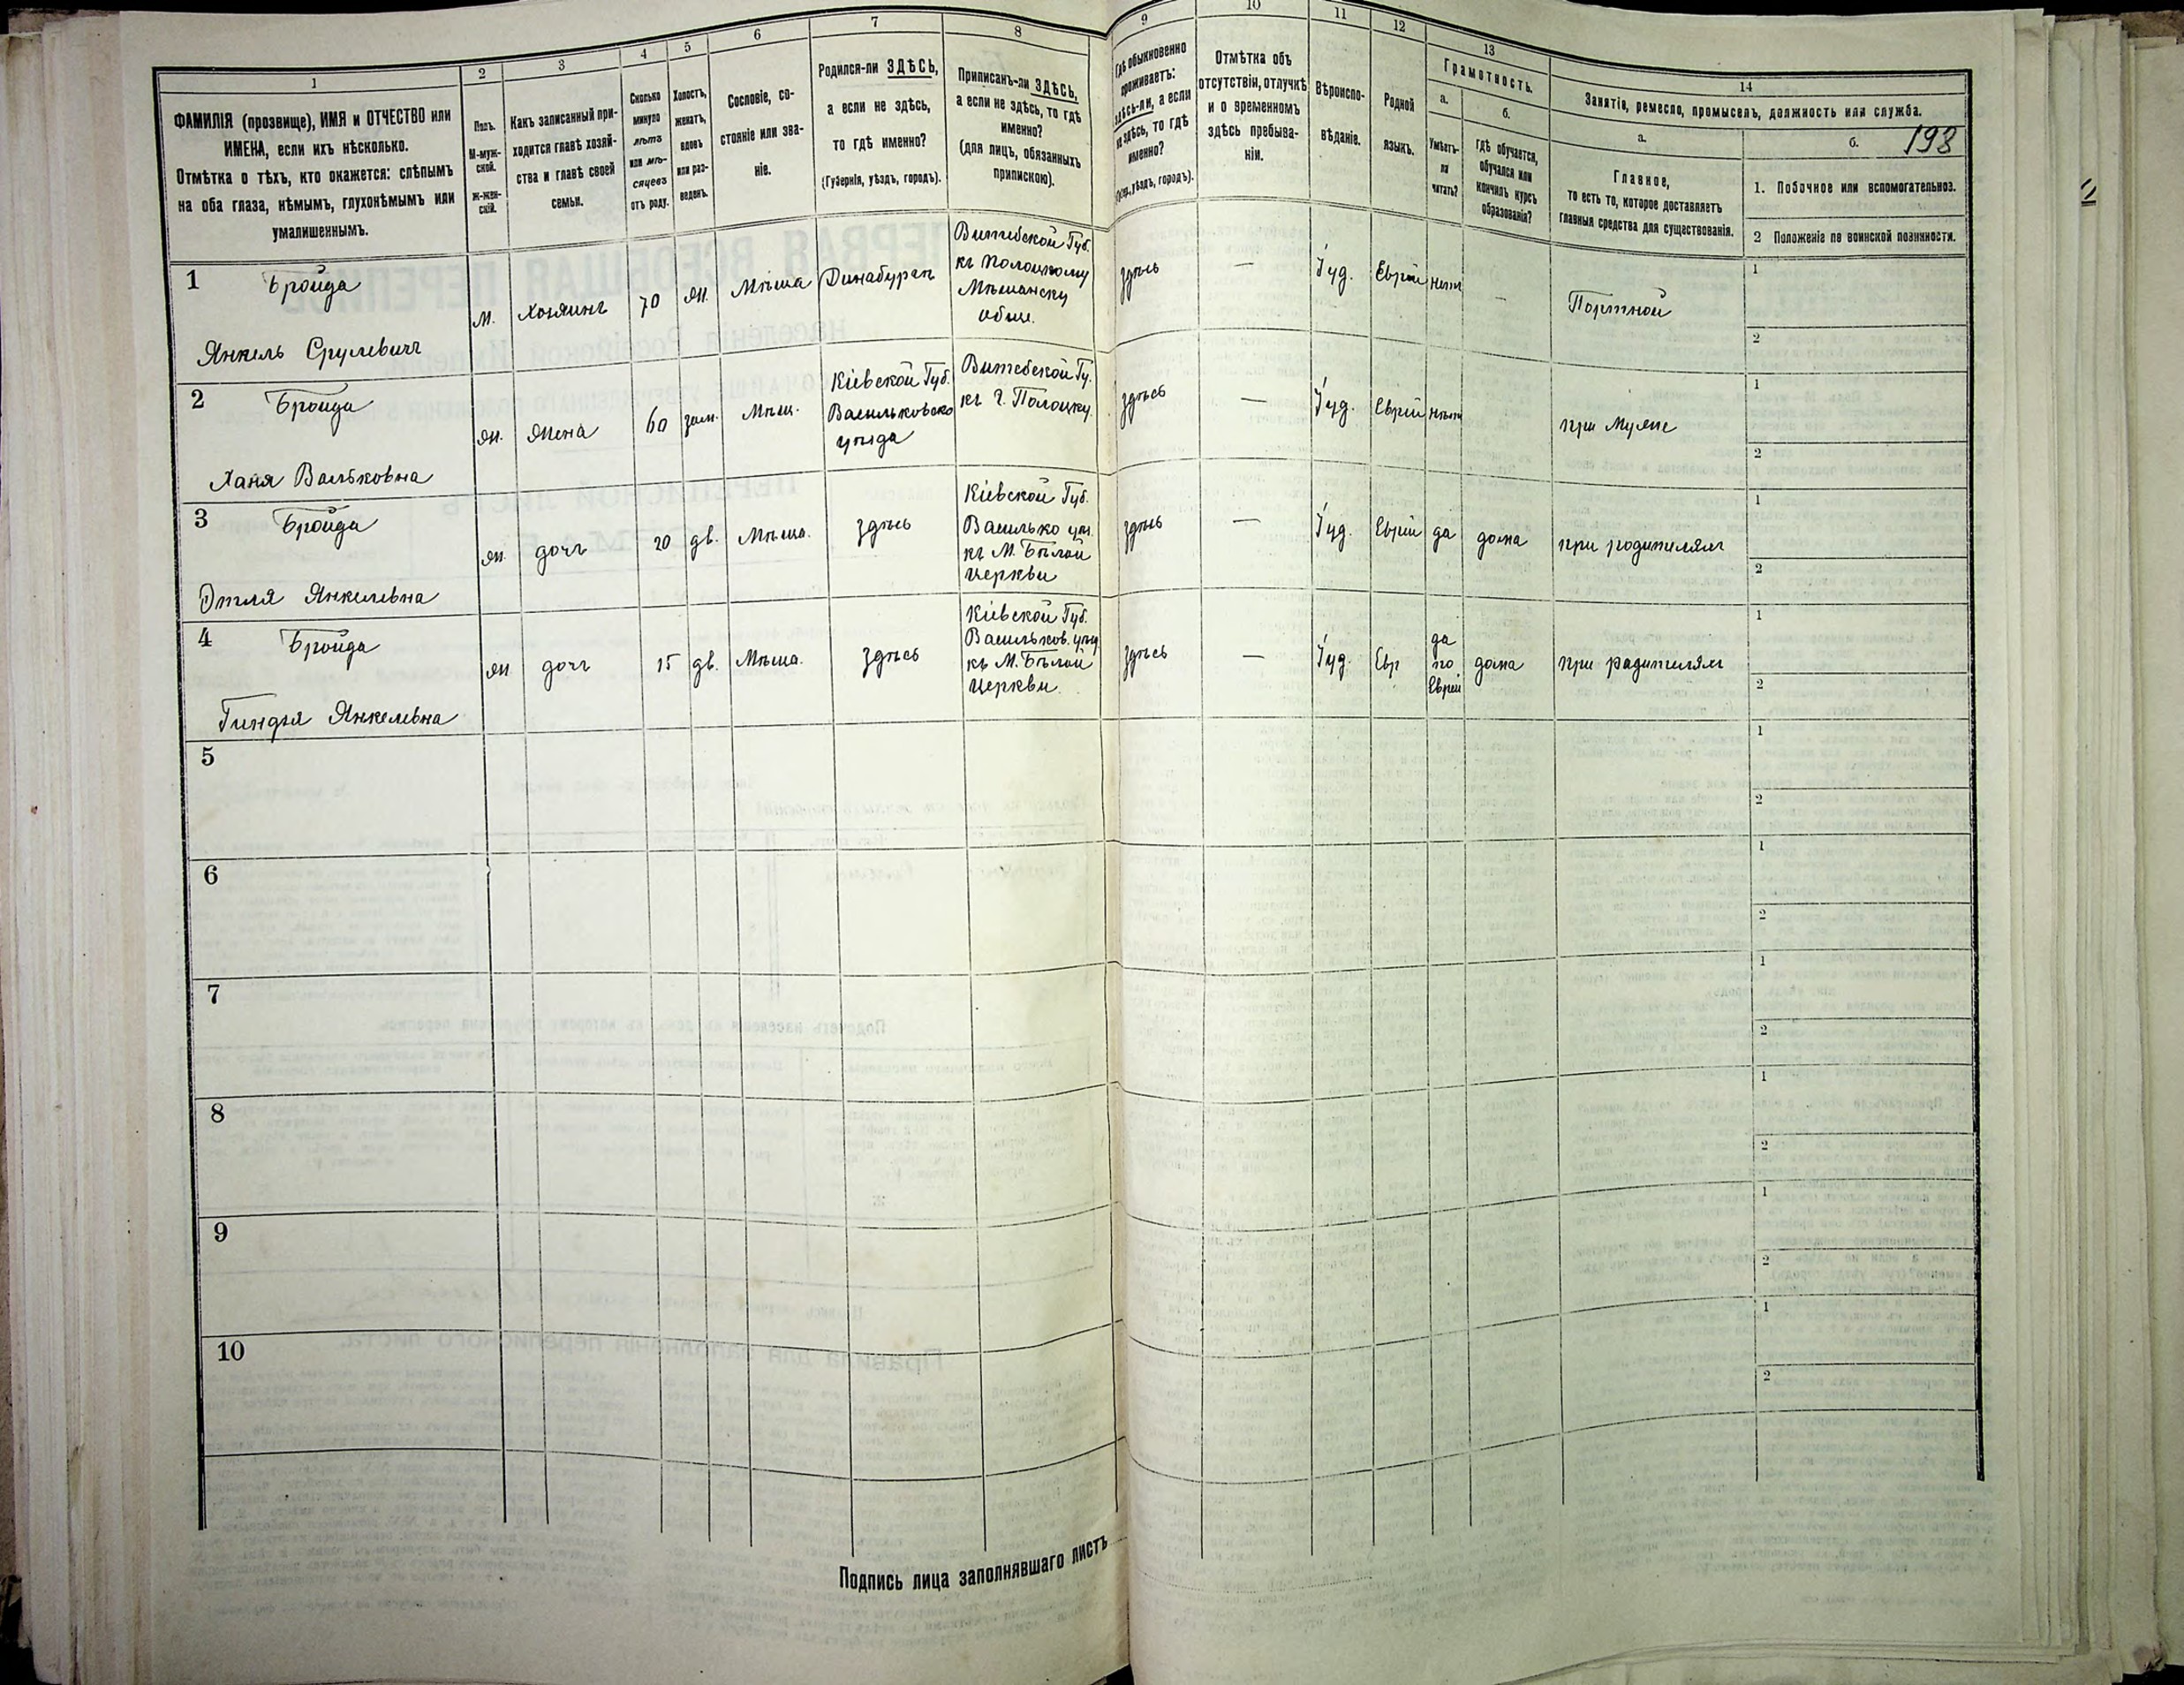 1
2
3
4
5
6
7
8
9
10
11
12
13
14
ФАМИЛІЯ (прозвище), ИМЯ и ОТЧЕСТВО или
ИМЕНА, если ихъ нѣсколько.
Отмѣтка о тѣхъ, кто окажется: слѣпымъ
на оба глаза, нѣмымъ, глухонѣмымъ или
умалишеннымъ.
Полъ.
М-муж-
ской.
Ж-жен-
скій.
Какъ записанный при-
ходится главѣ хозяй-
ства и главѣ своей
семьи.
Сколько
минуло
лѣтъ
или мѣ-
сяцевъ
отъ роду.
Холостъ,
женатъ,
вдовъ
или раз-
веденъ.
Сословіе, со-
стояніе или зва-
ніе.
Родился-ли ЗДѢСЬ,
а если не здѣсь,
то гдѣ именно?
(Губернія, уѣздъ, городъ).
Приписанъ-ли ЗДѢСЬ,
а если не здѣсь, то гдѣ
именно?
(для лицъ, обязанныхъ
припискою).
Гдѣ обыкновенно
проживаетъ:
здѣсь-ли, а если
не здѣсь, то гдѣ
именно?
уѣздъ, городъ).
Отмѣтка объ
отсутствіи, отлучкѣ
и о временномъ
здѣсь пребыва-
ніи.
Вѣроиспо-
вѣданіе.
Родной
языкъ.
Грамотность.
а.
Умѣетъ-
ли
читать?
б.
гдѣ обучается,
обучался или
кончилъ курсъ
образованія?
Занятія, ремесло, промыселъ, должность или служба.
а.
Главное,
то есть то, которое доставляетъ
главныя средства для существованія.
б.
198
1. Побочное или вспомогательное.
2 Положеніе по воинской повинности.
1
Бройда
Янкель Срулевичъ
м.
хозяинъ
70
ж.
Мѣща
Динабургъ
Витебской Губ.
къ Полоцкому
Мѣщанску
обще.
здѣсь
—
Іуд.
Еврей
нетъ
—
Портной
1
2
2
Бройда
Ханя Вольковна
ж.
жена
60
зам.
Мѣщ.
Кіевской Губ.
Васильковско
уѣзда
Витебской Гу.
къ г. Полоцку.
здѣсь
—
Іуд.
Еврей
нѣтъ
при Мужѣ
1
2
3
Бройда
Этля Янкелевна
ж.
дочъ
20
дв.
Мѣща.
здѣсь
Кіевской Губ.
Василько уѣ.
къ М. Бѣлой
Церкви
здѣсь
—
Іуд.
Еврей
да
дома
при родителям
1
2
4
Бройда
Гиндя Янкелевна
ж
дочъ
15
дв.
Мѣща.
здѣсь
Кіевской Губ.
Васильков. уѣз
къ М. Бѣлой
Церкви.
здѣсь
—
Іуд.
Евр
да
по
Еврей
дома
при радителям
1
2
5
1
2
6
1
2
7
1
2
8
1
2
9
1
2
10
1
2
Подпись лица заполнявшаго листъ